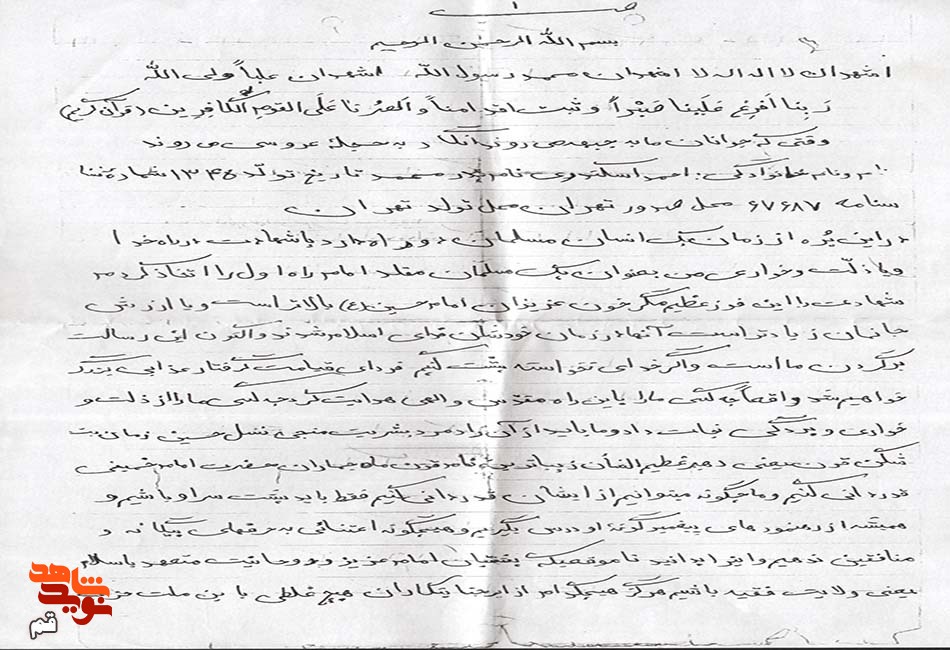 بسم الله الرحمن الرحیم
اشهدان لا اله الا الله اشهدان محمد رسول الله اشهدان علیاً ولی الله
ربنا افرغ علینا صبراً و ثبت اقدامنا و انصرنا علی القوم الکافرین (قرآن کریم)
وقتی که جوانان ما به جبهه می روند انگار به حجله عروسی می روند
نام و نام خانوادگی: احمد اسکندری نام پدر محمد تاریخ تولد ۱۳۴۵ شماره شنا
سنامه ۶۷۶۸۷ محل صدور تهران محل تولد تهران
در این بُره از زمان یک انسان مسلمان دو راه دارد یا شهادت در راه خدا
و یا ذلت و خواری من بعنوان یک مسلمان مقلد امام راه اول را اتخاذ کردم
شهادت را این فوز عظیم مگر خون عزیزان امام حسین (ع) بالاتر است و یا ارزش
جانمان زیادتر است آنها در زمان خودشان فدای اسلام شدند و اکنون این رسالت
برگردن ما است و اگر خدای نخواسته پشت کنیم فردای قیامت گرفتار عذابی بزرگ
خواهیم شد و اقعاً چه کسی ما را باین راه مقدس و الهی هدایت کرد چه کسی ما را از ذلت و
خواری و بردگی نجات داد و ما باید از این منجی نسل حسین زمان بت
شکن قرن یعنی رهبر عظیم الشأن حضرت امام خمینی
قدردانی کنیم و ما چگونه میتوانیم از ایشان قدردانی کنیم فقط باید پشت سر او باشیم و
همیشه از رهنمودهای پیغمبرگونه او درس بگیریم و هیچگونه اعتنائی به حرفهای بیگانه و
منافقین ندهیم و اینرا بدانید تا موقعیکه پشتیبان امام عزیز و روحانیت متعهد باسلام
یعنی ولایت فقیه باشیم هرگز هیچکدام از این جنایتکاران هیچ غلطی با این ملت
شاهد
نوید
قم